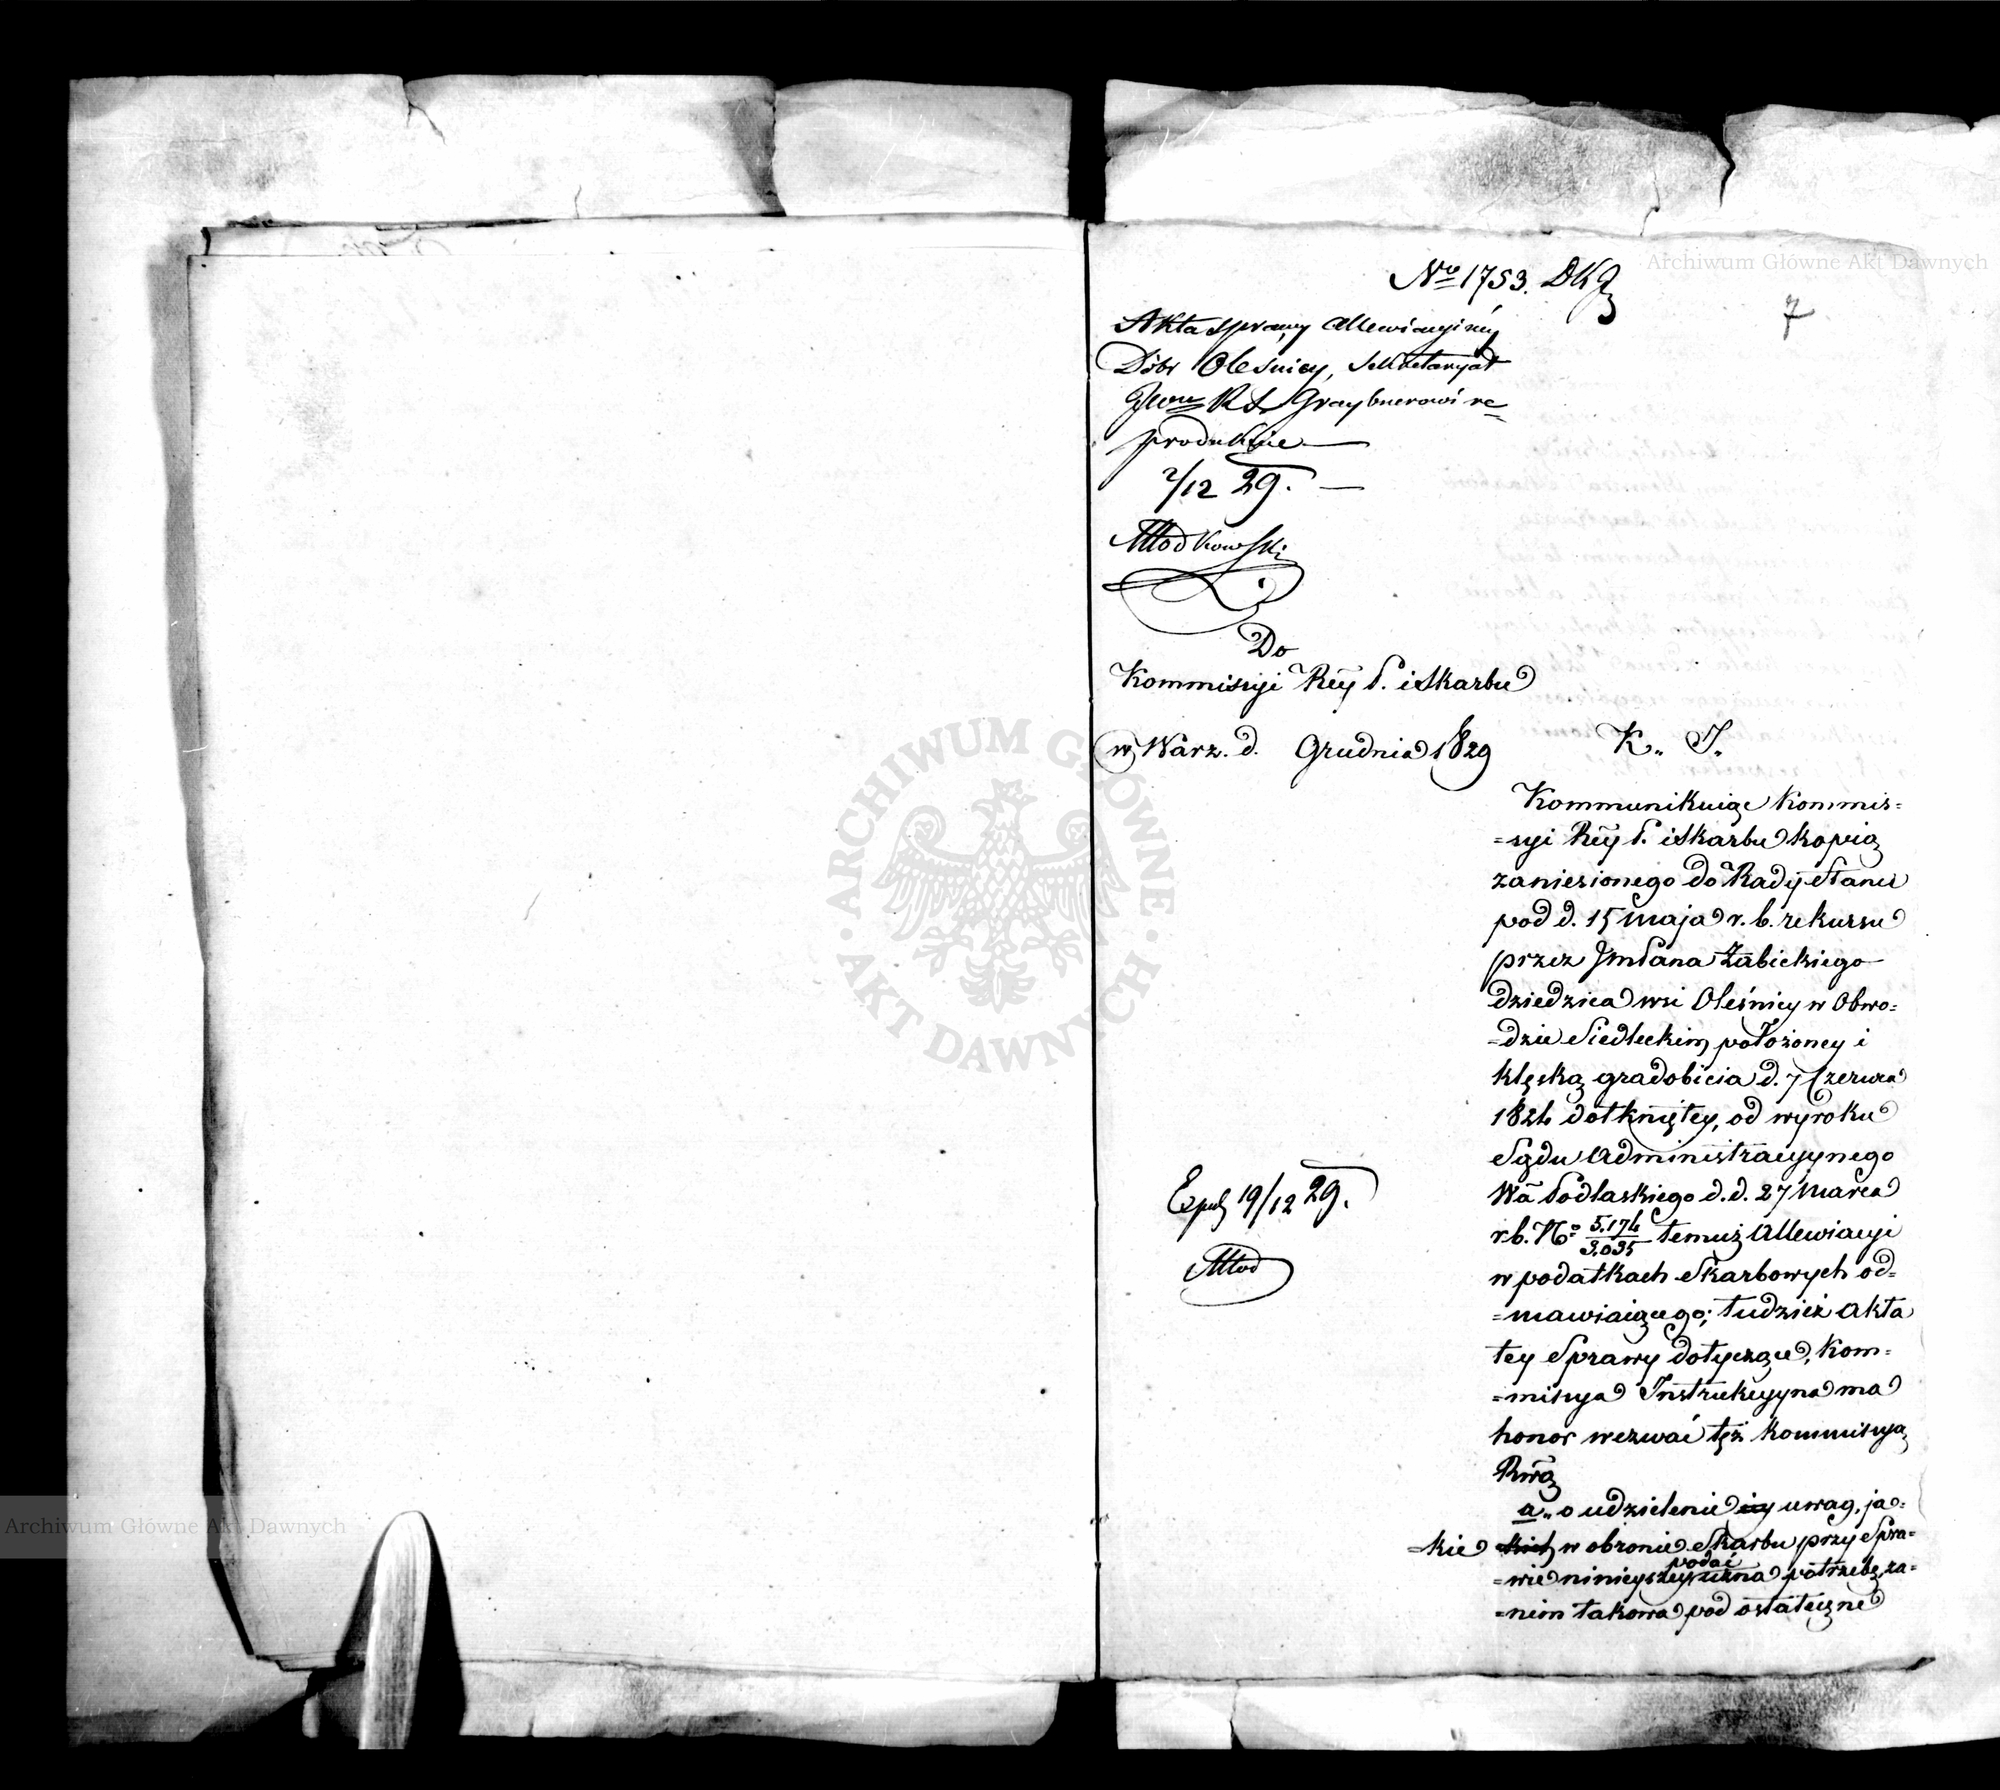 No 1753. DKJ
7
Akta sprawy allewiacyiney
Dóbr Oleśnicy, Sekretaryat
Graybnerowi re=
produkuie —
2/12 29. —
Młodkowski
Do
Kommissyi Rey P. i Skarbu
w Warz. d. Grudnia 1829
K. I.
Kommunikuiąc Kommis=
=syi Rey P. i Skarbu kopią
zaniesionego do Rady Stanu
pod d. 15 Maja r. b. rekursu
przez JmPana Żabickiego
dziedzica wsi Oleśnicy w Obwo=
=dzie Siedleckim położoney i
klęską gradobicia d. 7 Czerwca
1824 dotkniętey, od wyroku
Sądu Administracyynego
Wa Podlaskiego d. d. 27 Marca
r. b. No 5.174/3.035 temuż Allewiacyi
w podatkach Skarbowych od=
=mawiaiącego; tudzież akta
tey Sprawy dotyczące, Kom=
=missya Instrukcyyna ma
honor wezwać tęż Kommissyą
Rwą
a„ o udzielenie uwag, ja=
=kie w obronie Skarbu przy Spra=
podać
=wie ninieyszey uzna potrzebę, za=
=nim takowa pod ostateczne
Exped 19/12 29.
Młod
Archiwum Główne Akt Dawnych
ARCHIWUM GŁÓWNE · AKT DAWNYCH ·
Archiwum Główne Akt Dawnych